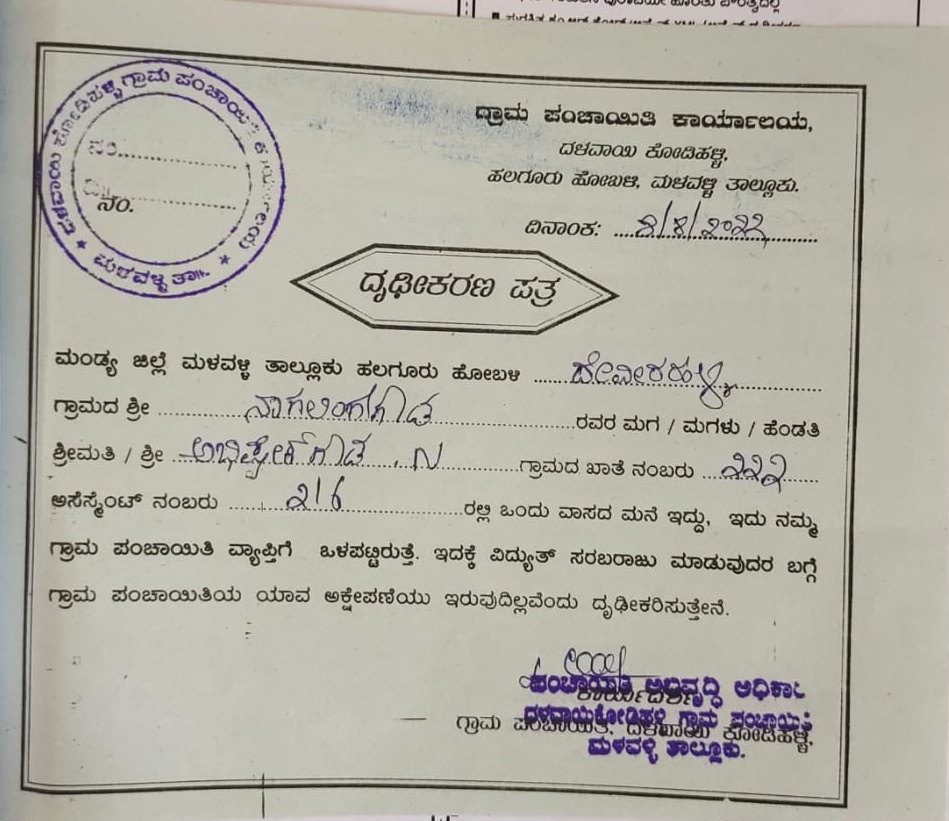 ದಳವಾಯಿ ಕೋಡಿಹಳ್ಳಿ ಗ್ರಾಮ ಪಂಚಾಯಿತಿ ಕಾರ್ಯಾಲಯ
ನಂ.
ಮಳವಳ್ಳಿ ತಾ||.
ಗ್ರಾಮ ಪಂಚಾಯಿತಿ ಕಾರ್ಯಾಲಯ,
ದಳವಾಯಿ ಕೋಡಿಹಳ್ಳಿ,
ಹಲಗೂರು ಹೋಬಳಿ, ಮಳವಳ್ಳಿ ತಾಲ್ಲೂಕು.
ದಿನಾಂಕ: ....೨/೪/೨೦೨೨
ದೃಢೀಕರಣ ಪತ್ರ
ಮಂಡ್ಯ ಜಿಲ್ಲೆ ಮಳವಳ್ಳಿ ತಾಲ್ಲೂಕು ಹಲಗೂರು ಹೋಬಳಿ ......ದೇವೀರಹಳ್ಳಿ
ಗ್ರಾಮದ ಶ್ರೀ ............ನಾಗಲಿಂಗೇಗೌಡ............ರವರ ಮಗ / ಮಗಳು / ಹೆಂಡತಿ
ಶ್ರೀಮತಿ / ಶ್ರೀ ..ಅಭಿಷೇಕ್ ಗೌಡ . N ............ಗ್ರಾಮದ ಖಾತೆ ನಂಬರು ..೨೨೨......
ಅಸೆಸ್ಮೆಂಟ್ ನಂಬರು ........216............ರಲ್ಲಿ ಒಂದು ವಾಸದ ಮನೆ ಇದ್ದು, ಇದು ನಮ್ಮ
ಗ್ರಾಮ ಪಂಚಾಯಿತಿ ವ್ಯಾಪ್ತಿಗೆ ಒಳಪಟ್ಟಿರುತ್ತೆ. ಇದಕ್ಕೆ ವಿದ್ಯುತ್ ಸರಬರಾಜು ಮಾಡುವುದರ ಬಗ್ಗೆ
ಗ್ರಾಮ ಪಂಚಾಯಿತಿಯ ಯಾವ ಅಕ್ಷೇಪಣೆಯು ಇರುವುದಿಲ್ಲವೆಂದು ದೃಢೀಕರಿಸುತ್ತೇನೆ.
ಪಂಚಾಯಿತಿ ಅಭಿವೃದ್ಧಿ ಅಧಿಕಾ
ಕಾರ್ಯದರ್ಶಿ
ದಳವಾಯಿಕೋಡಿಹಳ್ಳಿ ಗ್ರಾಮ ಪಂಚಾಯಿತಿ
ಗ್ರಾಮ ಪಂಚಾಯಿತಿ, ದಳವಾಯಿ ಕೋಡಿಹಳ್ಳಿ,
ಮಳವಳ್ಳಿ ತಾಲ್ಲೂಕು.